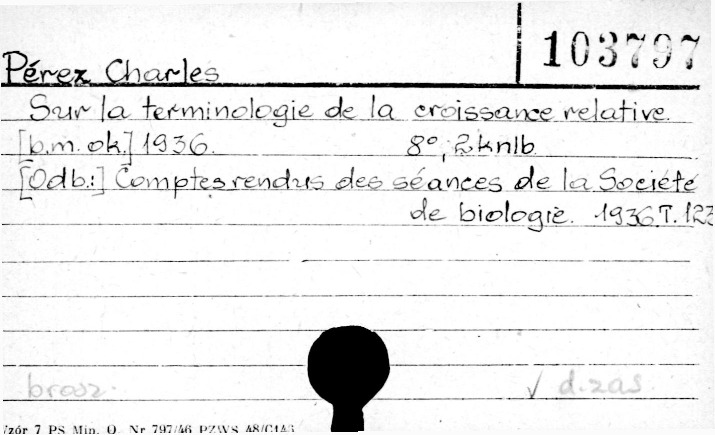 103797
Pérez Charles
Sur la terminologie de la croissance relative.
[b.m. ok.] 1936. 8°, 2 knlb.
[Odb.:] Comptes rendus des séances de la Société
de biologie. 1936. T. 123
brosz. √ d. zas.
zór 7 PS Min. O. Nr 797/46 PZWS 48/